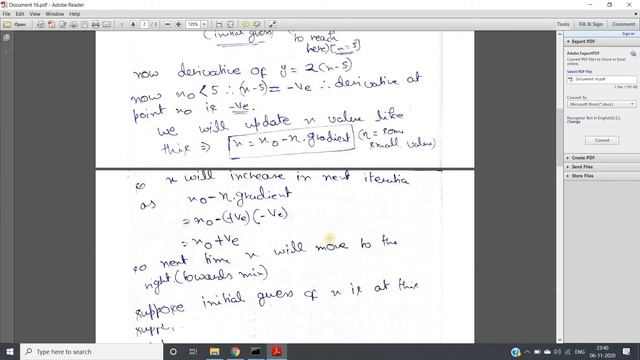 Document 16.pdf - Adobe Reader
File Edit View Window Help
Open
2 / 3
125%
Fill & Sign Comment
Sign In
(initial guess) to reach
here) [x=5]
now derivative of y = 2(x-5)
now x0 < 5 ∴ (x-5) = -Ve ∴ derivative at
point x0 is -Ve.
we will update x value like
this ⇒ x = x0 - η.gradient (η = some
small value)
so x will increase in next iteration
as x0 - η.gradient
= x0 - (+Ve)(-Ve)
= x0 + Ve
so next time x will move to the
right (towards min)
suppose initial guess of x is at this
Export PDF
Adobe ExportPDF
Convert PDF files to Word or Excel
online.
Select PDF File:
Document 16.pdf
1 file / 791 KB
Convert To:
Microsoft Word (*.docx)
Recognize Text in English(U.S.)
Change
Convert
Create PDF
Edit PDF
Combine PDF
Send Files
Store Files
Type here to search
ENG
23:40
06-11-2020